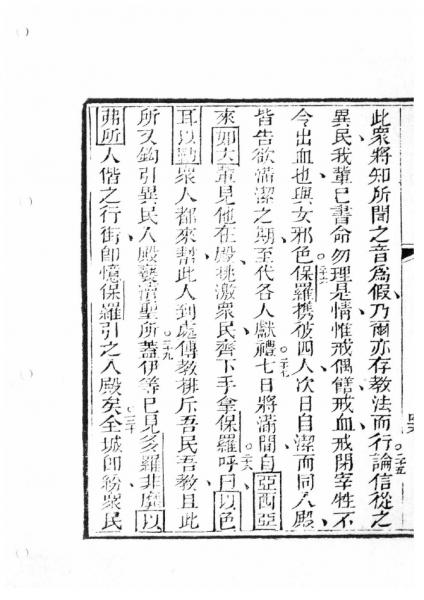 此衆將知所聞之音爲假乃爾亦存教法而行二十五論信從之
異民我輩已書命勿理是情惟戒偶餚戒血戒閉宰牲不
令出血也與女邪色二十六保羅携彼四人次日自潔而同入殿
皆告欲滿潔之期至代各人獻禮二十七七日將滿間自亞西亞
來如大輩見他在殿挑激衆民齊下手拿保羅二十八呼曰以色
耳以勒衆人都來幫此人到處傳教排斥吾民吾教且此
所又鈎引異民入殿褻瀆聖所二十九蓋伊等已見多羅非摩以
弗所人偕之行街卽憶保羅引之入殿矣三十全城卽紛衆民